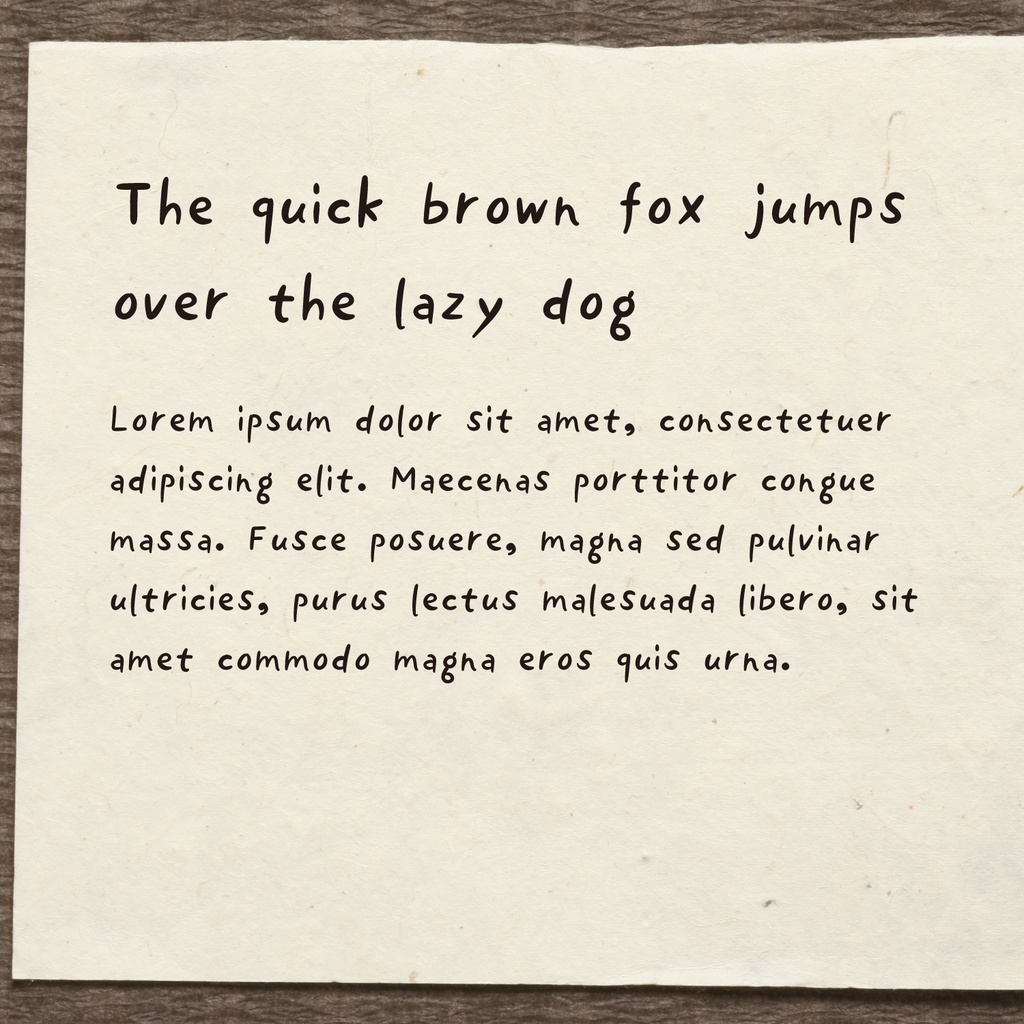 The quick brown fox jumps
over the lazy dog
Lorem ipsum dolor sit amet, consectetuer
adipiscing elit. Maecenas porttitor congue
massa. Fusce posuere, magna sed pulvinar
ultricies, purus lectus malesuada libero, sit
amet commodo magna eros quis urna.